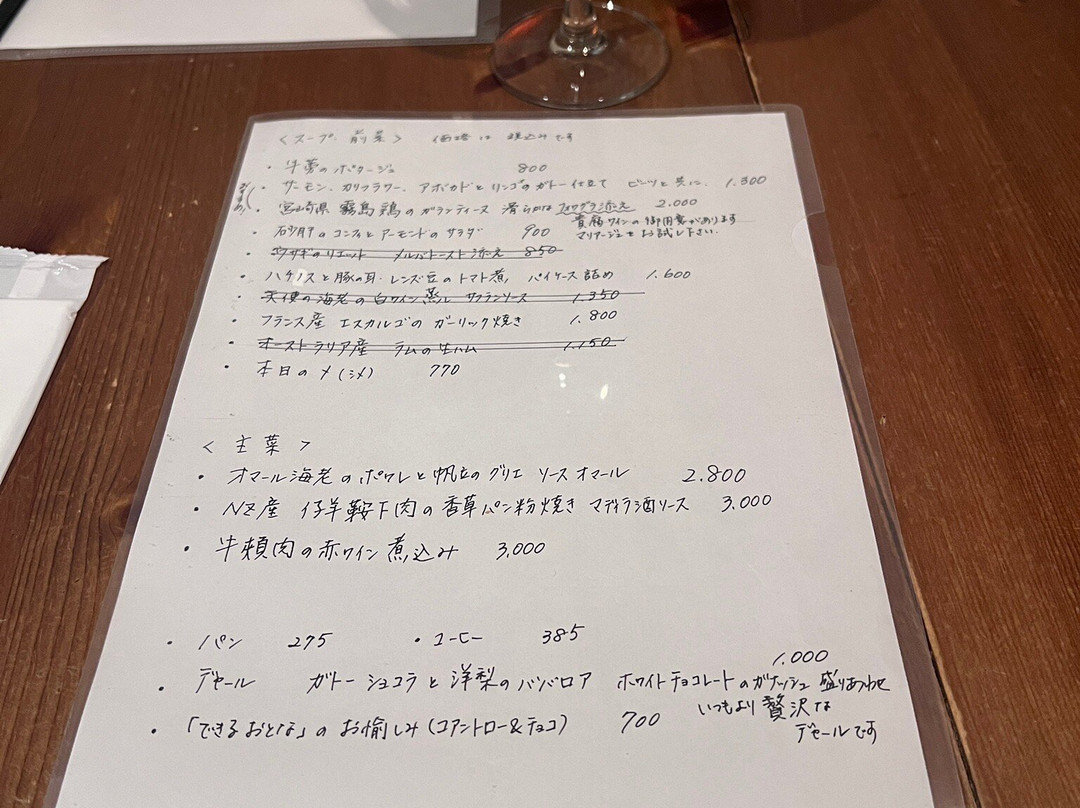 〈スープ・前菜〉 価格は税込みです
・牛蒡のポタージュ 800
・サーモン、カリフラワー、アボカドとリンゴのガトー仕立て ビーツと共に、 1.300
おすすめ!
・宮崎県 霧島鶏のガランティーヌ 滑らかなフォワグラ添え 2.000
貴腐ワインの御用意があります
マリアージュをお試し下さい.
・砂肝のコンフィとアーモンドのサラダ 900
・ウサギのリエット メルバトースト添え 850
・ハチノスと豚の耳、レンズ豆のトマト煮, パイケース詰め 1.600
・天使の海老の白ワイン蒸し サフランソース 1.350
・フランス産 エスカルゴのガーリック焼き 1.800
・オーストラリア産 ラムの生ハム 1.150
・本日の〆(シメ) 770
〈主菜〉
・オマール海老のポワレと帆立のグリエ ソースオマール 2.800
・NZ産 仔羊鞍下肉の香草パン粉焼き マディラ酒ソース 3.000
・牛頬肉の赤ワイン煮込み 3,000
・パン 275 ・コーヒー 385
・デセール ガトーショコラと洋梨のババロア ホワイトチョコレートのガナッシュ 盛りあわせ 1.000
いつもより贅沢な
デセールです
・「できるおとな」のお愉しみ(コアントロー&チョコ) 700